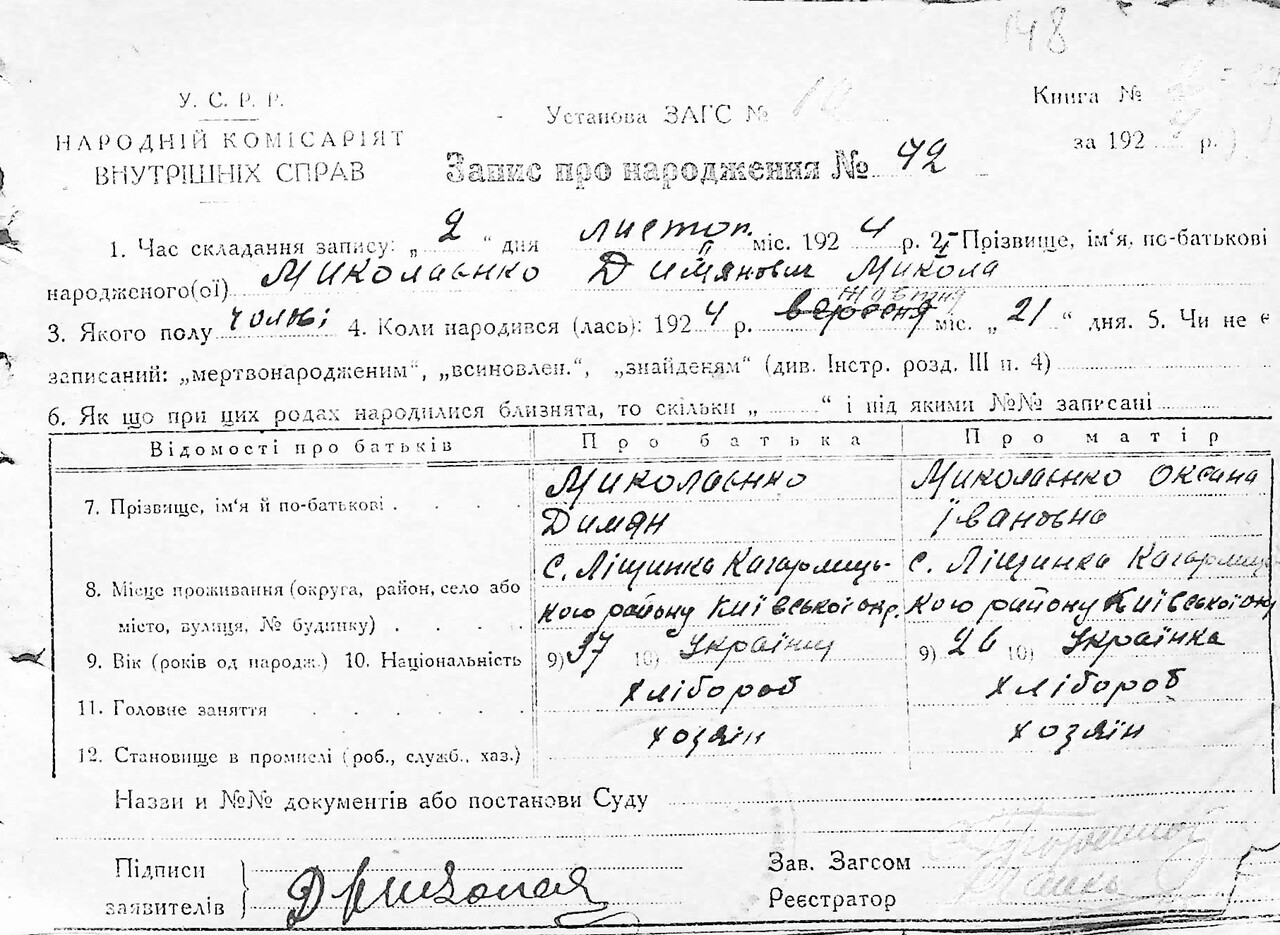 148
У. С. Р. Р.
НАРОДНІЙ КОМІСАРІЯТ
ВНУТРІШНІХ СПРАВ
Установа ЗАГС № 10
Книга №
за 192 4 р.
Запис про народження № 42
1. Час складання запису: „ 2 “ дня листоп. міс. 192 4 р. 2. Прізвище, ім'я, по-батькові
народженого(ої) Миколаєнко Димянович Микола
жовтня
3. Якого полу чолові 4. Коли народився (лась): 192 4 р. вересня міс. „ 21 “ дня. 5. Чи не є
записаний: „мертвонародженим“, „всиновлен.“, „знайденям“ (див. Інстр. розд. III п. 4)
6. Як що при цих родах народилися близнята, то скільки „ “ і під якими №№ записані
Відомості про батьків Про батька Про матір
7. Прізвище, ім'я й по-батькові Миколаєнко Димян Миколаєнко Оксана Івановна
8. Місце проживання (округа, район, село або с. Ліщинка Кагарлиць- с. Ліщинка Кагарлиць
місто, вулиця, № будинку) кого району Київської окр. кого району Київської окр
9. Вік (років од народж.) 10. Національність 9) 37 10) Українц 9) 26 10) Українка
11. Головне заняття хлібороб хлібороб
12. Становище в промислі (роб., служб., хаз.) хозяїн хозяїн
Назви и №№ документів або постанови Суду
Підписи
заявителів
Зав. Загсом
Реєстратор